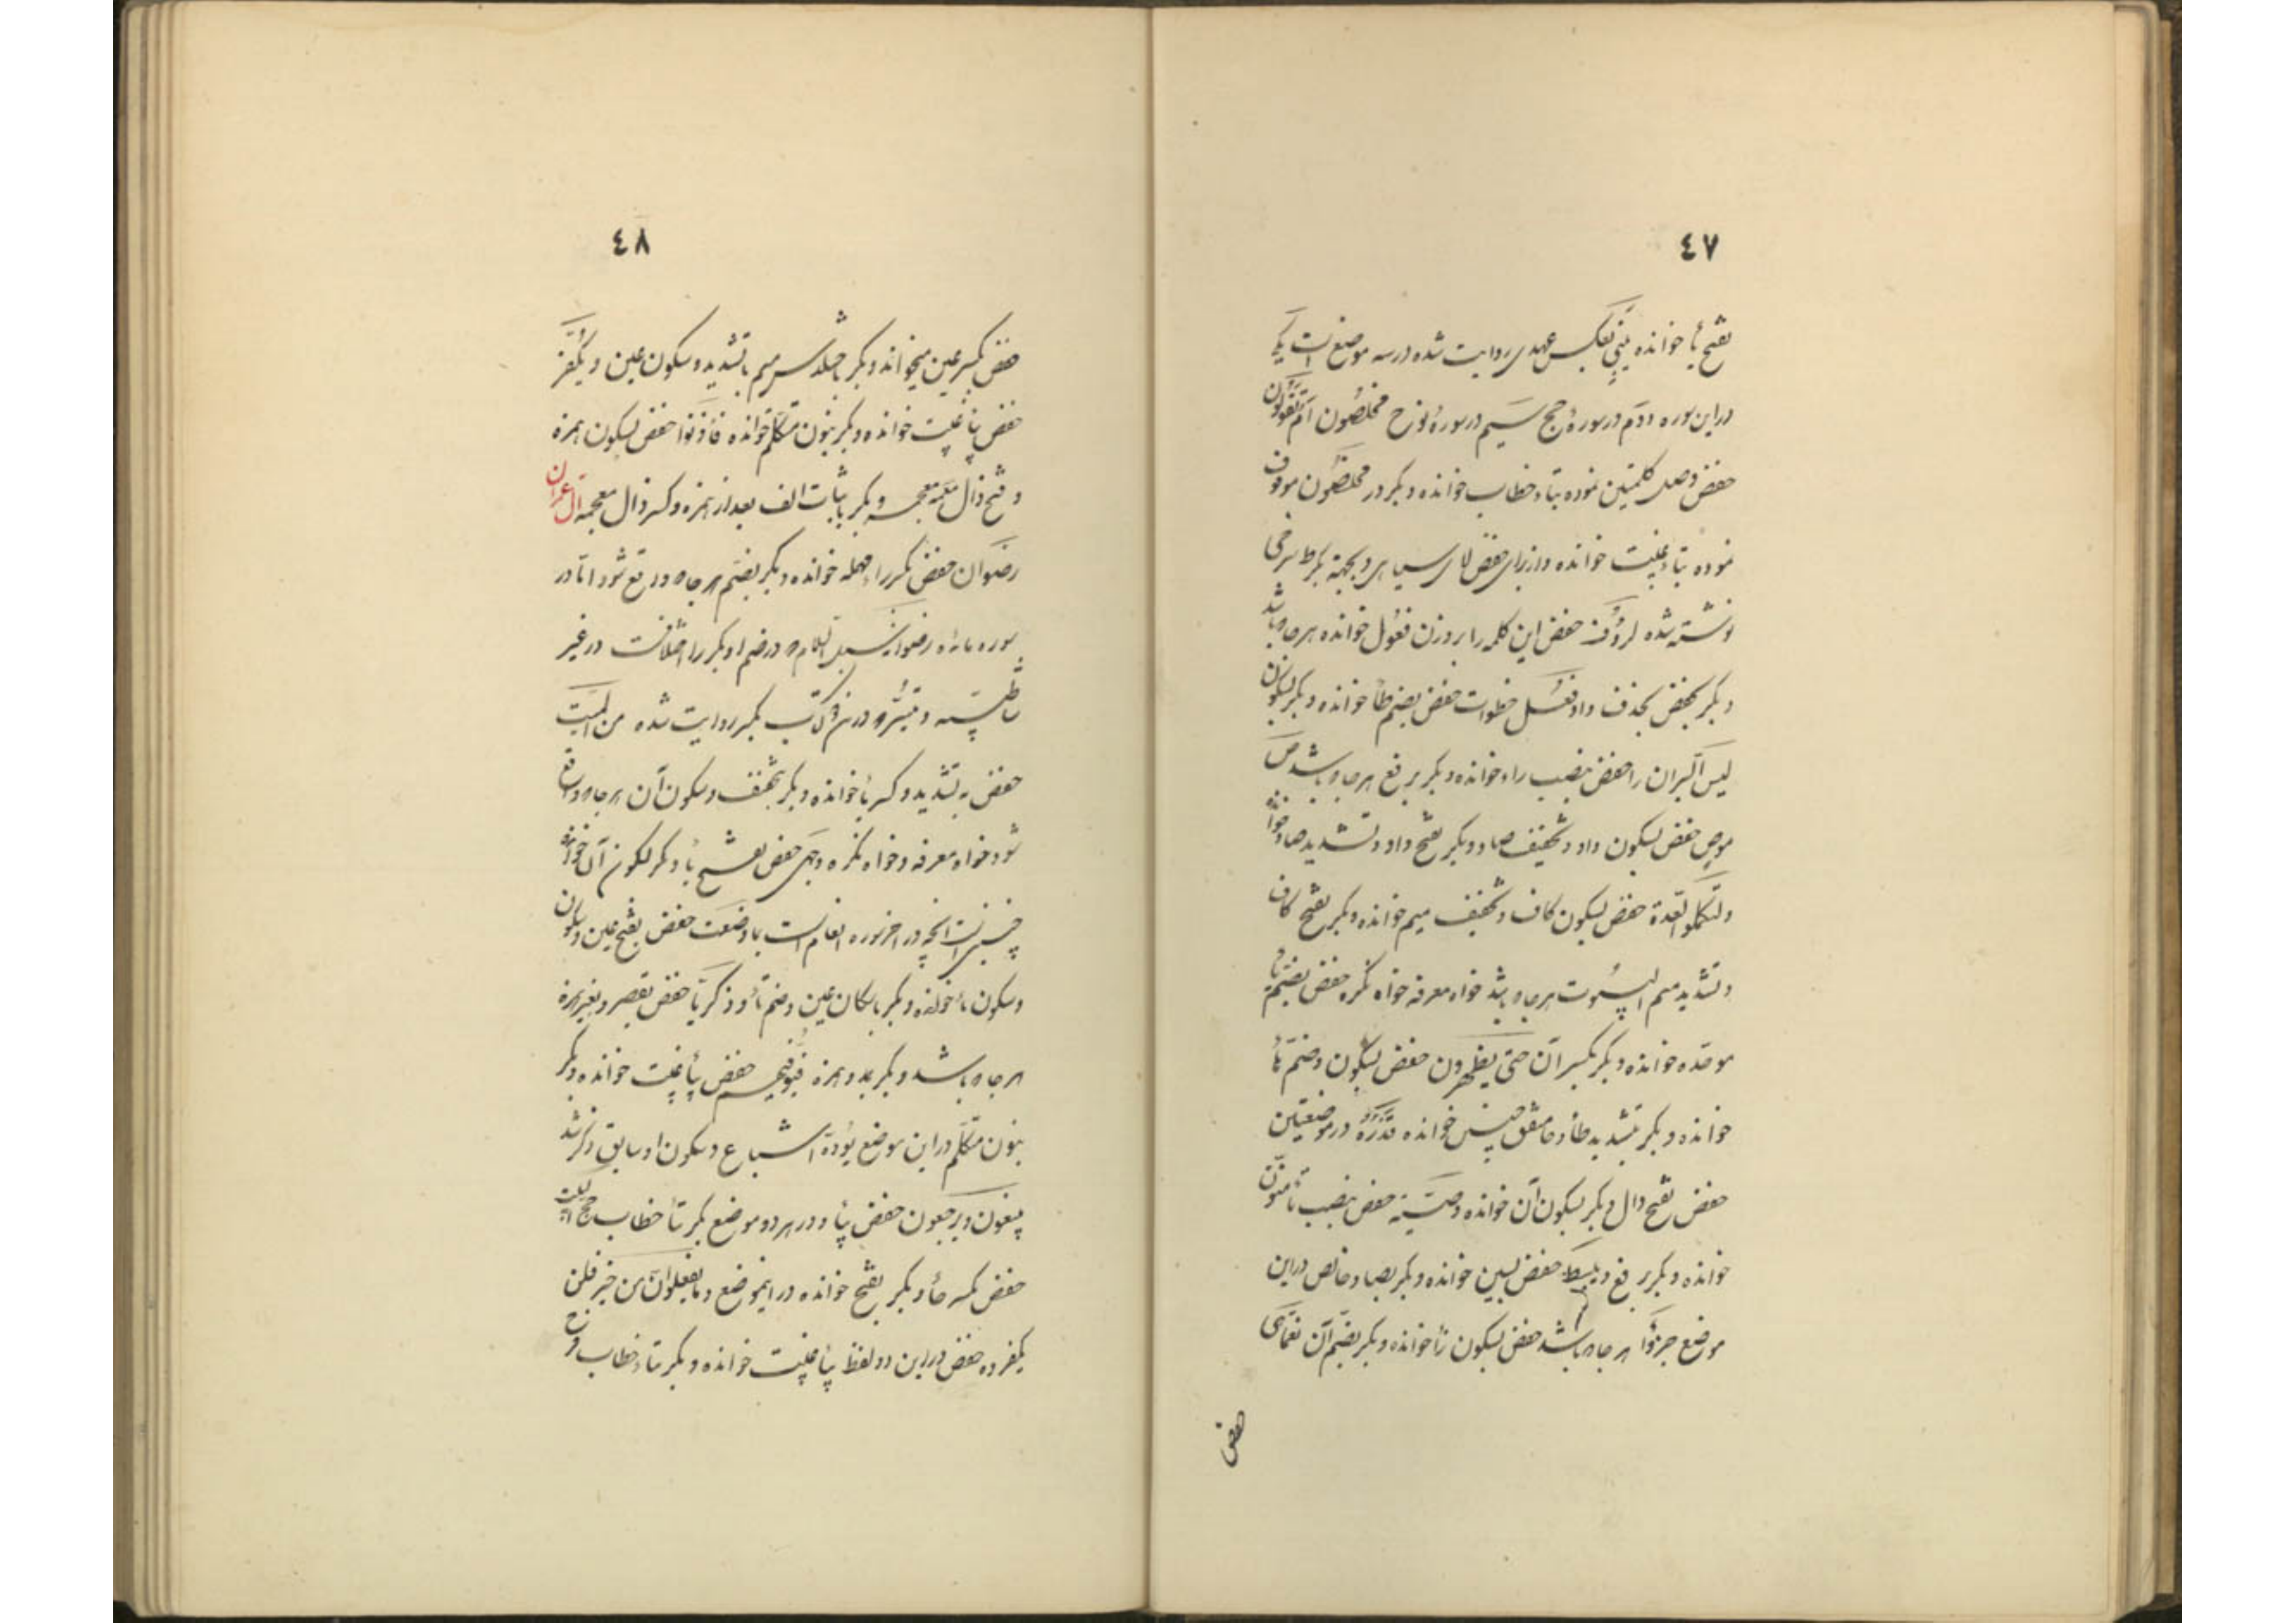 ٤٧
بفتح یا خوانده بیتی بعکس عهدی روایت شده در سه موضع است یکی
در این سوره دوم در سورهٔ حج سیم در سورهٔ نوح مخلصون ام تقولون
حفص وصل کلمتین نموده بتاء خطاب خوانده و بکر در مخلصون موقوف
نموده بتاء غیبت خوانده و از برای حفص لای سیاهی و بجهة بکر ط سرخی
نوشته شده لرؤف حفص این کلمه را بر وزن فعول خوانده هر جا که باشد
و بکر بحذف واو فعل خطوات حفص بضم طا خوانده و بکر بسکون
لیس البران را حفص بنصب راء خوانده و بکر برفع هر جا که باشد من
موص حفص بسکون واو و تخفیف صاد و بکر بفتح واو و تشدید صاد خوانده
ولتکملوا العدة حفص بسکون کاف و تخفیف میم خوانده و بکر بفتح کاف
و تشدید میم البیوت هر جا که باشد خواه معرفه خواه نکره حفص بضم باء
موحده خوانده و بکر بکسر آن حتی یطهرون حفص بسکون و ضم هأ
خوانده و بکر بتشدید طأ و ها خوانده قدره در موضعین
حفص بفتح دال و بکر بسکون آن خوانده وصیة حفص بنصب تأ منون
خوانده و بکر برفع و یبسط حفص بسین خوانده و بکر بصاد خالص در این
موضع جزؤا هر جا که باشد حفص بسکون زأ خوانده و بکر بضم آن نعما هی
حفص
٤٨
حفص بکسر عین میخواند و بکر باختلاس میم با تشدید و سکون عین و یکفر
حفص بیأ غیبت خوانده و بکر بنون متکلم خوانده فأذنوا حفص بسکون همزه
و فتح ذال معجمه و بکر باثبات الف بعد از همزه و کسر ذال معجمه آل عمران
رضوان حفص بکسر راء مهمله خوانده و بکر بضم هر جا که واقع شود اما در
سوره مائده رضوانه سبل السلام که در ضم او بکر را اختلافست در غیر
شاطبیه و تیسر و در نزد کتب بکسر روایت شده من المیت
حفص به تشدید و کسر یأ خوانده و بکر بتخفیف و سکون آن هر جا که واقع
شود خواه معرفه و خواه نکره وجهی حفص بفتح یأ و بکر بسکون آن خوانده
چنین است آنچه در آخر سوره انعام است بما وضعت حفص بفتح عین و سکون
و سکون تأ خوانده و بکر باسکان عین و ضم تأ و زکریا حفص بقصر و بغیر همزه
هر جا که باشد و بکر بمد و همزه فیوفیهم حفص بیأ غیبت خوانده و بکر
بنون متکلم در این موضع یؤده اشباع و سکون او سابق ذکر شد
یبغون و یرجعون حفص بیأ و در هر دو موضع بکر بتأ خطاب حج البیت
حفص بکسر حأ و بکر بفتح خوانده در این موضع و ما یفعلوا من خیر فلن
یکفروه حفص در این دو لفظ بیأ غیبت خوانده و بکر بتاء خطاب